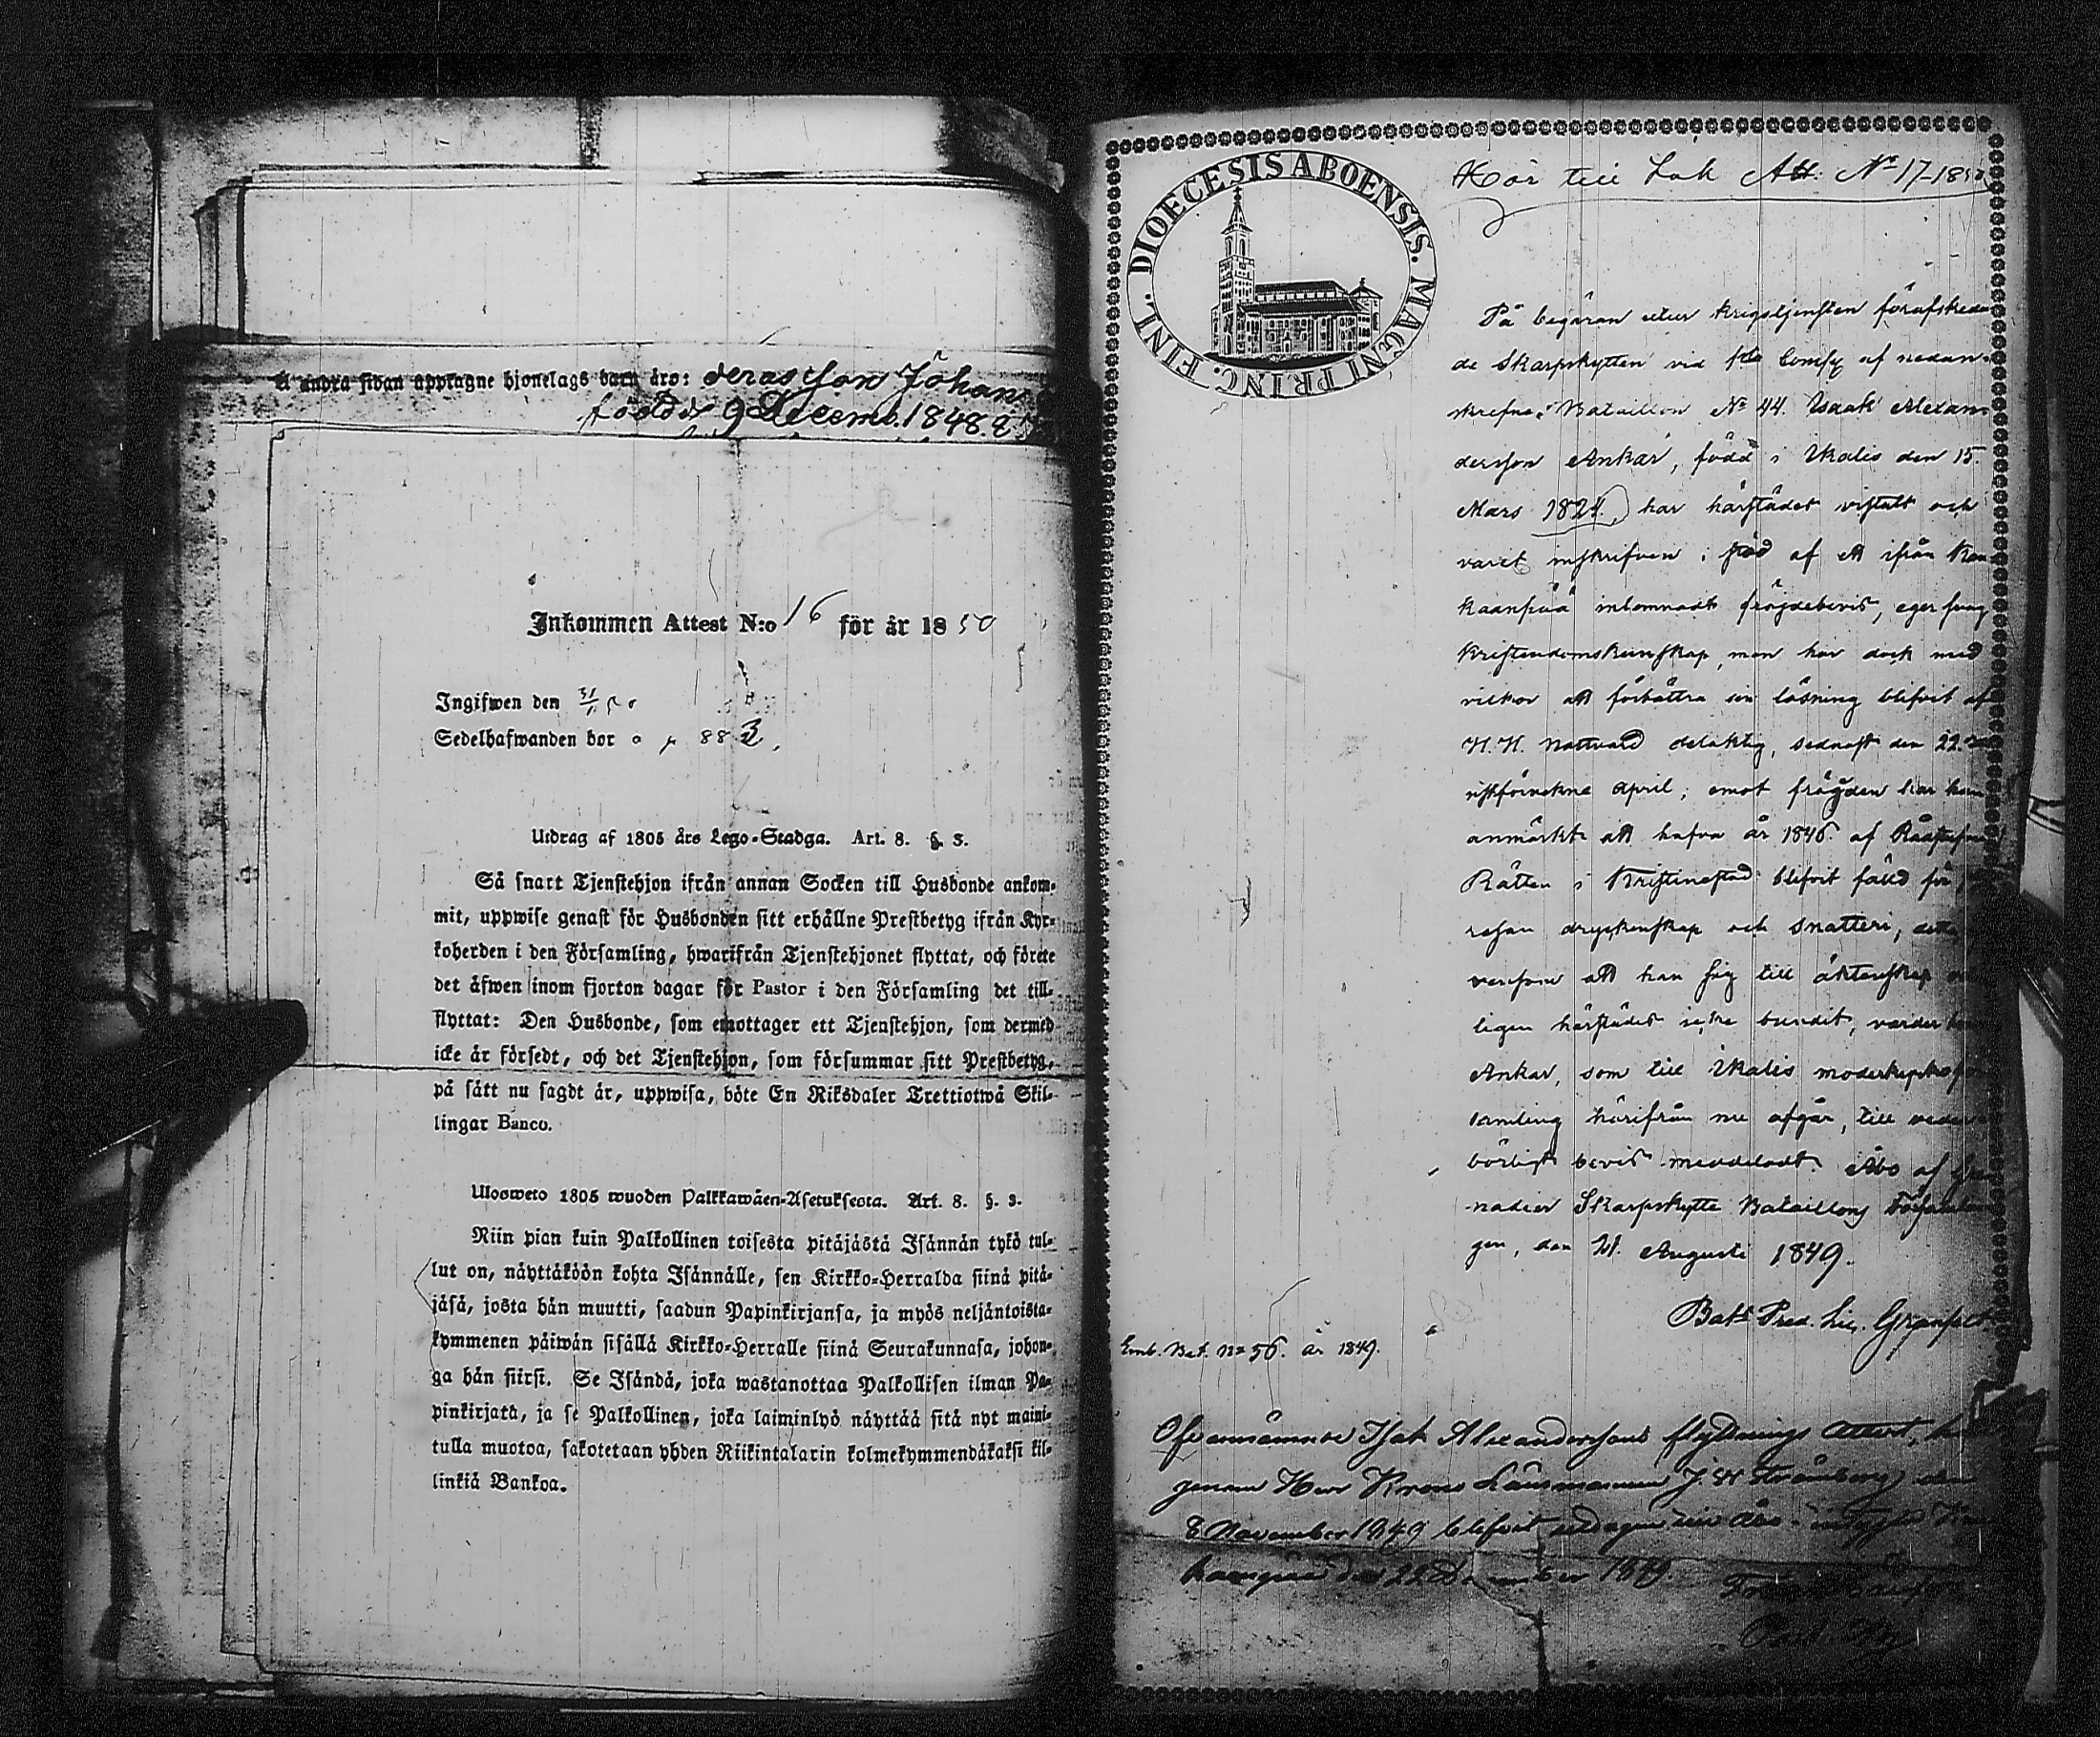 A andra sidan upptagne hjonelags barn äro: deras son Johan
född d. 9 Decemb. 1848.
Inkommen Attest N:o 16 för år 1850
Ingifwen den 31/1 50
Sedelhafwanden bor o p 883.
Utdrag af 1805 års Lego-Stadga. Art. 8. §. 3.
Så snart Tjenstehjon ifrån annan Socken till Husbonde ankom-
mit, uppwise genast för Husbonden sitt erhållne Prestbetyg ifrån Kyr-
koherden i den Församling, hwarifrån Tjenstehjonet flyttat, och förete
det äfwen inom fjorton dagar för Pastor i den Församling det till-
flyttat: Den Husbonde, som emottager ett Tjenstehjon, som dermed
icke är försedt, och det Tjenstehjon, som försummar sitt Prestbetyg,
på sätt nu sagdt är, uppwisa, böte En Riksdaler Trettiotwå Skil-
lingar Banco.
Ulosweto 1805 wuoden Palkkawäen-Asetuksesta. Art. 8. §. 3.
Niin pian kuin Palkollinen toisesta pitäjästä Isännän tykö tul-
lut on, näyttäköön kohta Isännälle, sen Kirkko-Herralda siinä pitä-
jäsä, josta hän muutti, saadun Papinkirjansa, ja myös neljäntoista-
kymmenen päiwän sisällä Kirkko-Herralle siinä Seurakunnasa, johon-
ga hän siirsi. Se Isändä, joka wastanottaa Palkollisen ilman Pa-
pinkirjatа, ja se Palkollinen, joka laiminlyö näyttää sitä nyt maini-
tulla muotoa, sakotetaan yhden Riikintalarin kolmekymmendäkaksi kil-
linkiä Bankoa.
DIOECESIS ABOENSIS. MAGNI PRINC. FINL.
Hör till Ink Att. No 17-1850
På begäran utur krigstjensten förafskeda-
de Skarpskytten vid 1sta Comp. af nedan-
skrefne Bataillon No 44. Isaak Alexan-
dersson Ankar, född i Ikalis den 15
Mars 1824, har härstädes vistats och
varit inskrifven i stöd af ett ifrån Kan-
kaanpää inlemnadt frejdebevis, eger svag
kristendomskunskap, men har dock med
vilkor att förbättra sin läsning blifvit af
H. H. Nattvard delaktig, sednast den 22
sistförvekne April; emot frägden har han
anmärkts att hafva år 1846 af Rådstufvu
Rätten i Kristinestad blifvit fälld för
resan dryckenskap och snatteri,
att han sig till äktenskap
ligen härstädes icke bundit, varder
Ankar, som till Ikalis moderkyrkoför-
samling härifrån nu afgår, till veder-
börligt bevis meddeladt. Åbo af Gre-
nadier Skarpskytte Bataillons Församlin-
gen, den 21. Augusti 1849.
Bats Pred. Lic. Granfelt.
Emb. Bet. No 56. år 1849.
Ofvannämnde Isak Alexanderssons flyttnings Attest,
genom Herr Krono Länsmannen J. W Strömberg den
8 November 1849 blifvit
den 22 December 1849.